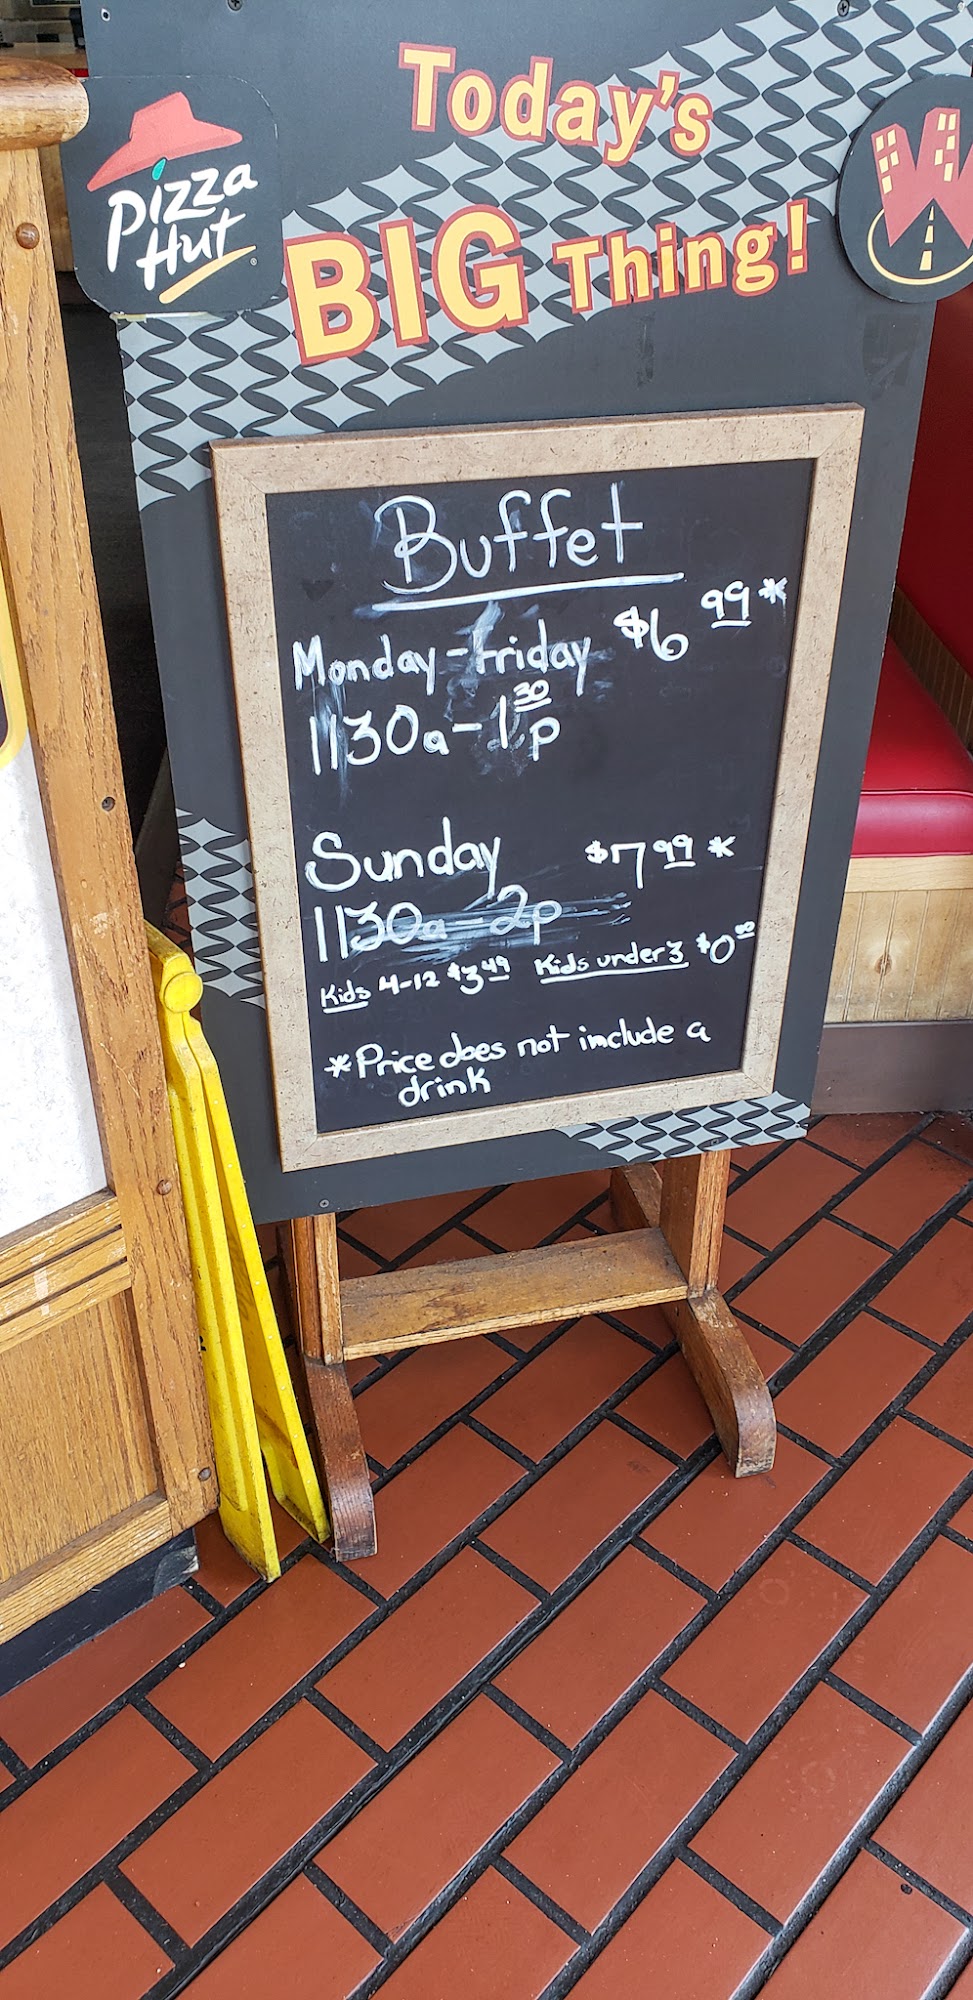 Pizza
Hut
Today's
BIG Thing!
W
Buffet
Monday-Friday $6 99*
1130a-1 30p
Sunday $7 99*
1130a-2p
Kids 4-12 $3 49 Kids under 3 $0 00
*Price does not include a
drink